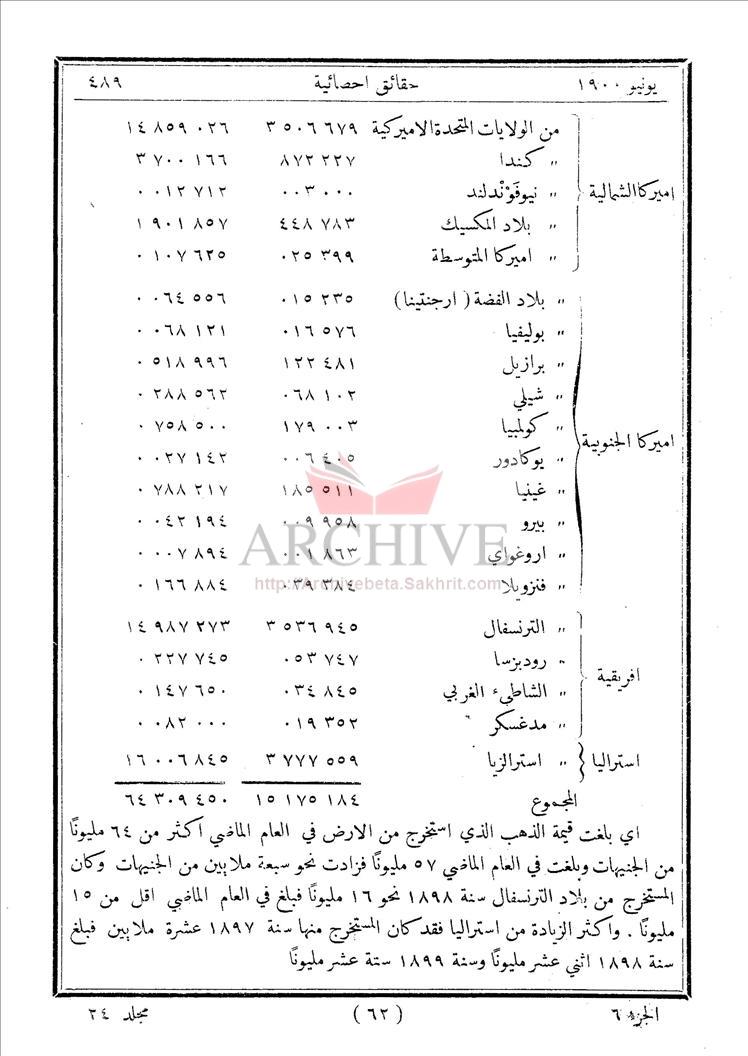 يونيو ١٩٠٠ حقائق احصائية ٤٨٩
من الولايات المتحدة الاميركية ٣ ٥٠٦ ٦٧٩ ١٤ ٨٥٩ ٠٢٦
" كندا ٨٧٢ ٢٢٧ ٣ ٧٠٠ ١٦٦
اميركا الشمالية " نيوفَوْندلند ٠٠٣ ٠٠٠ ٠ ٠١٢ ٧١٢
" بلاد المكسيك ٤٤٨ ٧٨٣ ١ ٩٠١ ٨٥٧
" اميركا المتوسطة ٠٢٥ ٣٩٩ ٠ ١٠٧ ٦٢٥
" بلاد الفضة ( ارجنتينا ) ٠١٥ ٢٣٥ ٠ ٠٦٤ ٥٥٦
" بوليفيا ٠١٦ ٥٧٦ ٠ ٠٦٨ ١٢١
" برازيل ١٢٢ ٤٨١ ٠ ٥١٨ ٩٩٦
" شيلي ٠٦٨ ١٠٢ ٠ ٢٨٨ ٥٦٢
" كولمبيا ١٧٩ ٠٠٣ ٠ ٧٥٨ ٥٠٠
اميركا الجنوبية
" يوكادور ٠٠٦ ٤٠٥ ٠ ٠٢٧ ١٤٢
" غينيا ١٨٥ ٥١١ ٠ ٧٨٨ ٢١٧
" بيرو ٠٠٩ ٩٥٨ ٠ ٠٤٢ ١٩٤
ARCHIVE
" اروغواي ٠٠١ ٨٦٣ ٠ ٠٠٧ ٨٩٤
" فنزويلا ٠٣٩ ٣٨٤ ٠ ١٦٦ ٨٨٤
http://Archivebeta.Sakhrit.com
" الترنسفال ٣ ٥٣٦ ٩٤٥ ١٤ ٩٨٧ ٢٧٣
" روديزسا ٠٥٣ ٧٤٧ ٠ ٢٢٧ ٧٤٥
افريقية
" الشاطىء الغربي ٠٣٤ ٨٤٥ ٠ ١٤٧ ٦٥٠
" مدغسكر ٠١٩ ٣٥٢ ٠ ٠٨٢ ٠٠٠
استراليا " استرالزيا ٣ ٧٧٧ ٥٥٩ ١٦ ٠٠٦ ٨٤٥
المجموع ١٥ ١٧٥ ١٨٤ ٦٤ ٣٠٩ ٤٥٠
اي بلغت قيمة الذهب الذي استخرج من الارض في العام الماضي اكثر من ٦٤ مليونًا
من الجنيهات وبلغت في العام الماضي ٥٧ مليونًا فزادت نحو سبعة ملايين من الجنيهات وكان
المستخرج من بلاد الترنسفال سنة ١٨٩٨ نحو ١٦ مليونًا فبلغ في العام الماضي اقل من ١٥
مليونًا . واكثر الزيادة من استراليا فقد كان المستخرج منها سنة ١٨٩٧ عشرة ملايين فبلغ
سنة ١٨٩٨ اثني عشر مليونًا وسنة ١٨٩٩ ستة عشر مليونًا
الجزء ٦ (٦٢) مجلد ٢٤